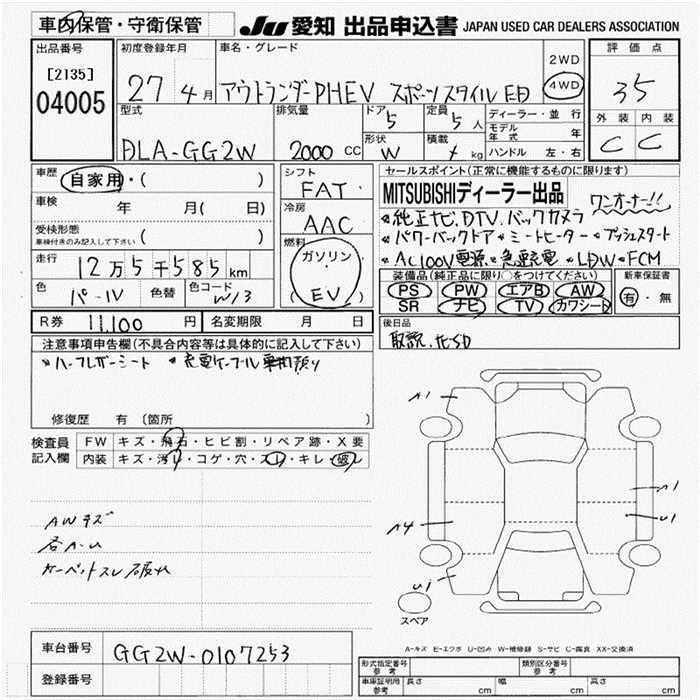 車内保管・守衛保管 JU愛知 出品申込書 JAPAN USED CAR DEALERS ASSOCIATION
出品番号 初度登録年月 車名・グレード 評価点
[2135] 27 4月 アウトランダーPHEV スポーツスタイルED 2WD 4WD 35
04005 型式 排気量 ドア 5 定員 5人 ディーラー・並行 外装 内装
DLA-GG2W 2000 CC 形状 W 積載 kg モデル年式 年 C C
ハンドル 左・右
車歴 自家用・( ) シフト FAT セールスポイント(正常に機能するものに限ります)
車検 年 月( 日) 冷房 AAC MITSUBISHIディーラー出品 ワンオーナー!!
受検形態 ( ) 純正ナビ.DTV.バックカメラ
車検付きのみ記入して下さい 燃料 パワーバックドア ミートヒーター プッシュスタート
走行 12万5千585km ガソリン AC100V電源 急速充電 LDW FCM
色 パール 色替 色コード W13 EV 装備品(純正品に限り○をつけてください) 新車保証書
PS PW エアB AW 有・無
SR ナビ TV カワシート
R券 11,100円 名変期限 月 日 後日品
注意事項申告欄(不具合内容等は具体的に記入して下さい) 取説.
ハーフレザーシート 充電ケーブル
修復歴 有 (箇所 )
検査員 FW キズ・飛石・ヒビ割・リペア跡・X要
記入欄 内装 キズ・汚れ・コゲ・穴・スレ・キレ・破レ
A1
A1
U1
A4
AWキズ
各A-U
カーペットスレ破れ
U1
スペア
A-キズ E-エクボ U-凹み W-補修跡 S-サビ C-腐食 XX-交換済
車台番号 GG2W-0107253
登録番号 形式指定番号 参考 類別区分番号 参考
車庫証明用 参考 長さ cm 幅 cm 高さ cm